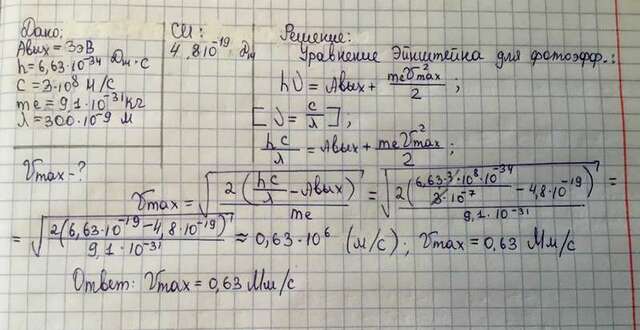 Дано:
Aвых = 3эВ
h = 6,63·10⁻³⁴ Дж·с
c = 3·10⁸ м/с
me = 9,1·10⁻³¹ кг
λ = 300·10⁻⁹ м
Vmax - ?
СИ:
4,8·10⁻¹⁹ Дж
Решение:
Уравнение Эйнштейна для фотоэфф.:
hν = Aвых + meVmax²/2 ;
[ν = c/λ],
hc/λ = Aвых + meVmax²/2 ;
Vmax = √(2(hc/λ - Aвых)/me) = √(2(6,63·3·10⁸·10⁻³⁴/3·10⁻⁷ - 4,8·10⁻¹⁹)/9,1·10⁻³¹) =
= √(2(6,63·10⁻¹⁹ - 4,8·10⁻¹⁹)/9,1·10⁻³¹) ≈ 0,63·10⁶ (м/с); Vmax = 0,63 Мм/с
Ответ: Vmax = 0,63 Мм/с